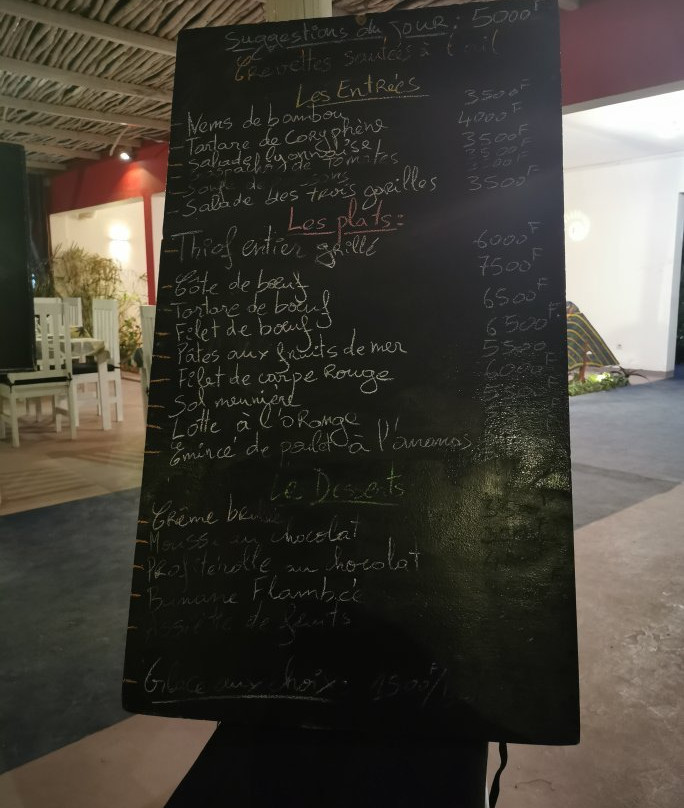 Suggestions du JOUR: 5000F
Crevettes sautées à l'ail
Les Entrées
- Nems de bambou 3500F
- Tartare de Coryphène 4000F
- Salade lyonnaise 3500F
de tomates
- Salade des trois gorilles 3500F
Les plats:
- Thiof entier grillé 6000F
- Côte de bœuf 7500F
- Tartare de bœuf 6500F
- Filet de bœuf 6500F
- Pâtes aux fruits de mer 5500
- Filet de carpe Rouge 6000
- Sol meunière
- Lotte à l'oRange
- Émincé de poulet à l'ananas
Le Desserts
- Crème brulée
- Mousse au chocolat
- Profiterolle au chocolat
- Banane Flambée
- Assiette de fruits
- Glace aux choix: 1500F